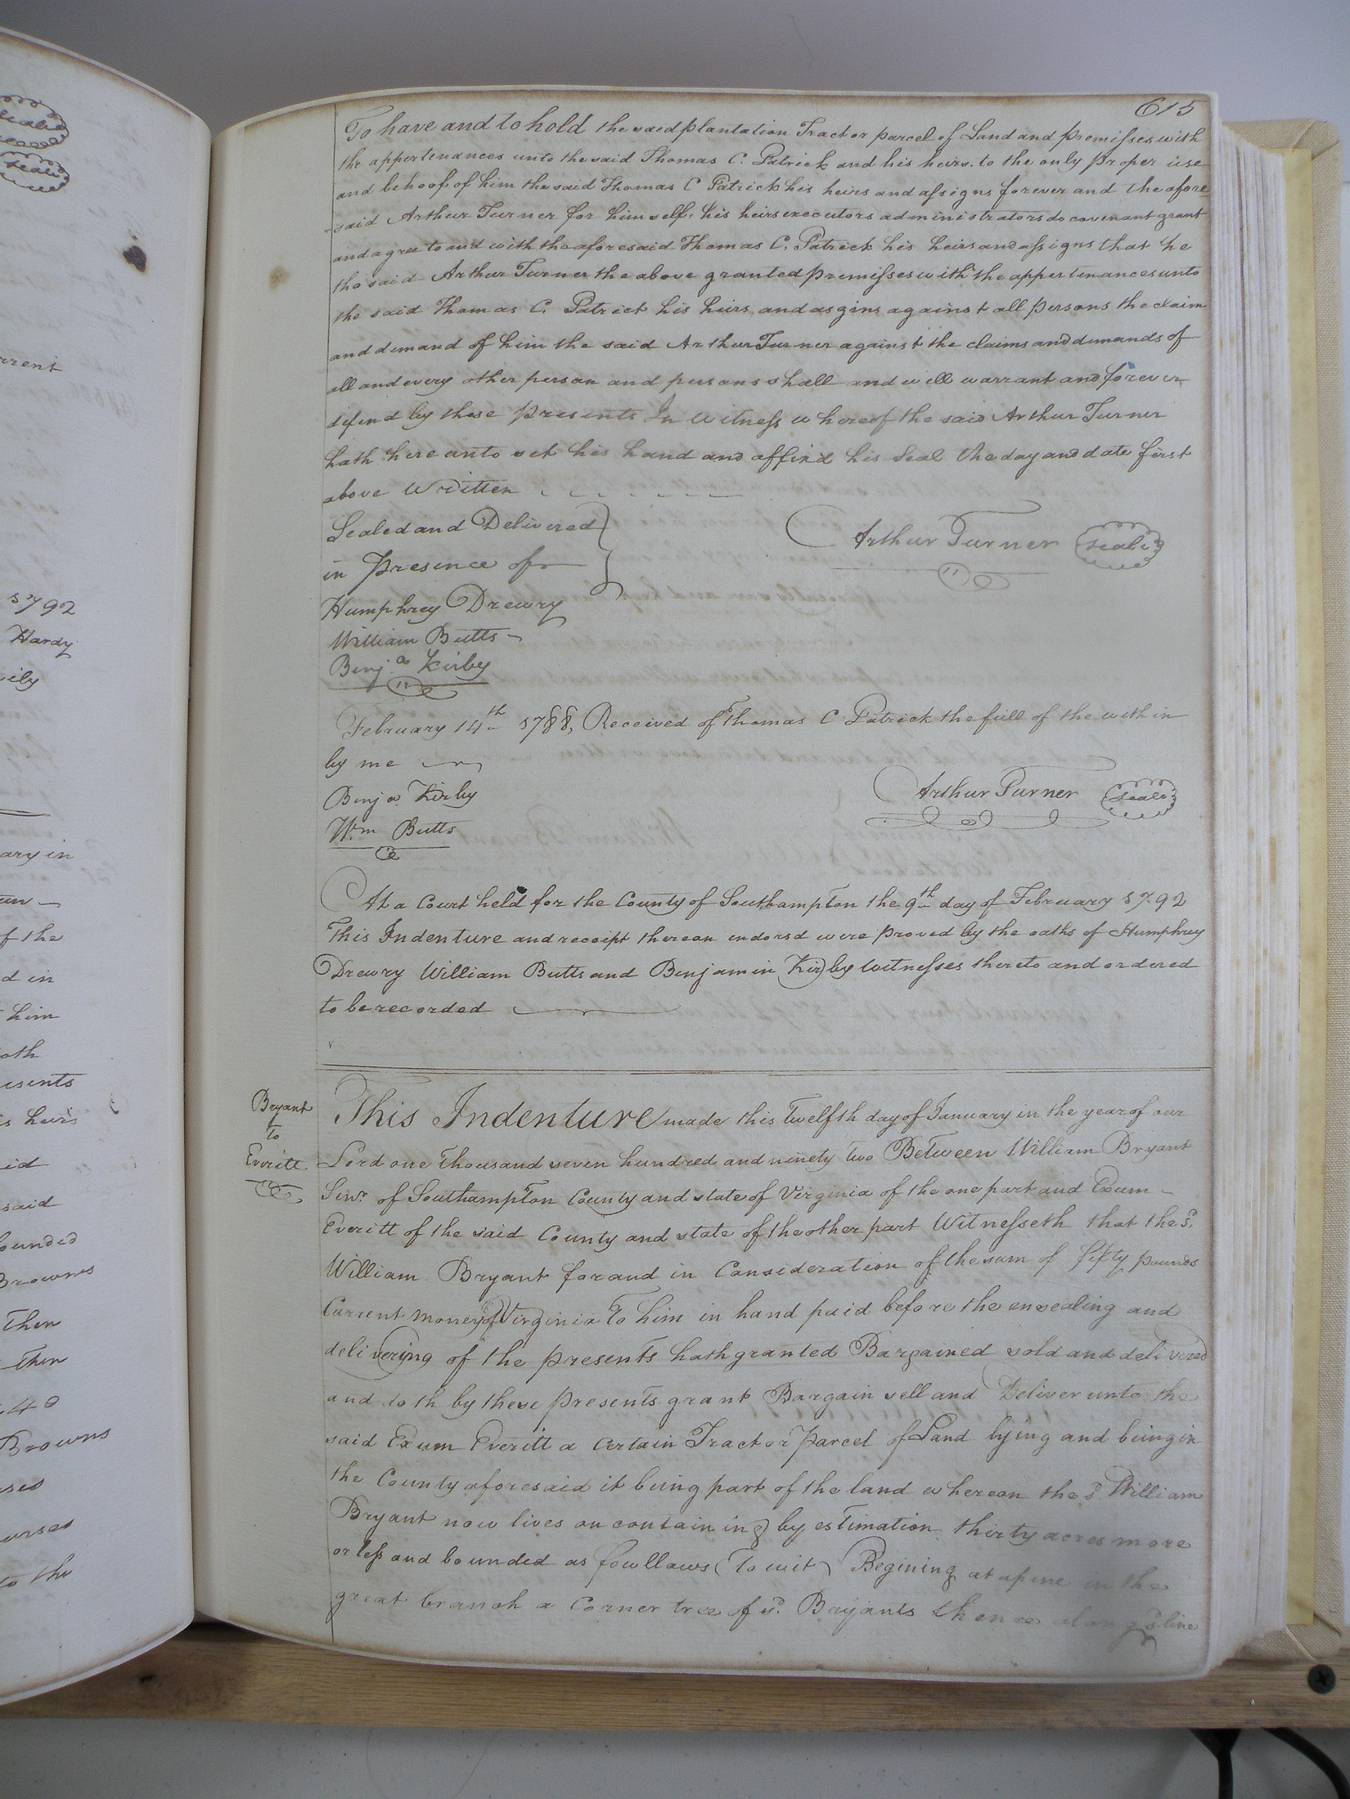 615
To have and to hold the said plantation Tract or parcel of Land and premisses with
the appertenances unto the said Thomas C. Patrick and his heirs to the only proper use
and behoof of him the said Thomas C Patrick his heirs and assigns forever and the afore
said Arthur Turner for himself, his heirs executors administrators do covenant grant
and agree to and with the aforesaid Thomas C. Patrick his heirs and assigns that he
the said Arthur Turner the above granted premisses with the appertenances unto
the said Thomas C. Patrick his heirs and asgins against all persons the claim
and demand of him the said Arthur Turner against the claims and demands of
all and every other person and persons shall and will warrant and forever
defend by these presents In witness whereof the said Arthur Turner
hath here unto set his hand and affixd his seal the day and date first
above written
Sealed and Delivered
in presence of
Arthur Turner seal
Humphrey Drewry
William Butts
Benja Kirby
February 14th 1788, Received of Thomas C Patrick the full of the within
by me
Arthur Turner seal
Benja Kirby
Wm Butts
At a Court held for the County of Southampton the 9th day of February 1792
This Indenture and receipt thereon endorsd were proved by the oaths of Humphrey
Drewry William Butts and Benjamin Kirby witnesses thereto and ordered
to be recorded
Bryant
to
Everitt
This Indenture made this Twelfth day of January in the year of our
Lord one Thousand seven hundred and ninety two Between William Bryant
Senr. of Southampton County and state of Virginia of the one part and Exum
Everitt of the said County and state of the other part Witnesseth that the sd.
William Bryant for and in Consideration of the sum of fifty pounds
Current money of Virginia To him in hand paid before the ensealing and
delivering of the presents hath granted Bargained sold and delivered
and doth by these presents grant Bargain sell and Deliver unto the
said Exum Everitt a certain Tract or parcel of Land lying and being in
the County aforesaid it being part of the land whereon the sd William
Bryant now lives on containing by estimation thirty acres more
or less and bounded as fowllaws (To wit) Begining at a pine in the
great branch a Corner tree of sd. Bryants thence along sd line
5792
Hardy
ary in
of the
d in
him
oth
esents
said
ounded
Browns
Then
Then
Browns
to the